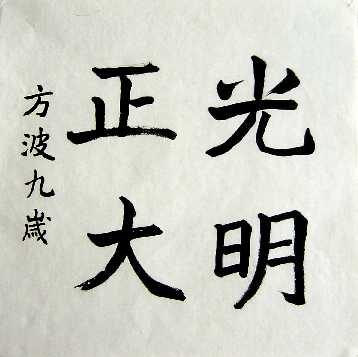 光明
正大
方波九歲